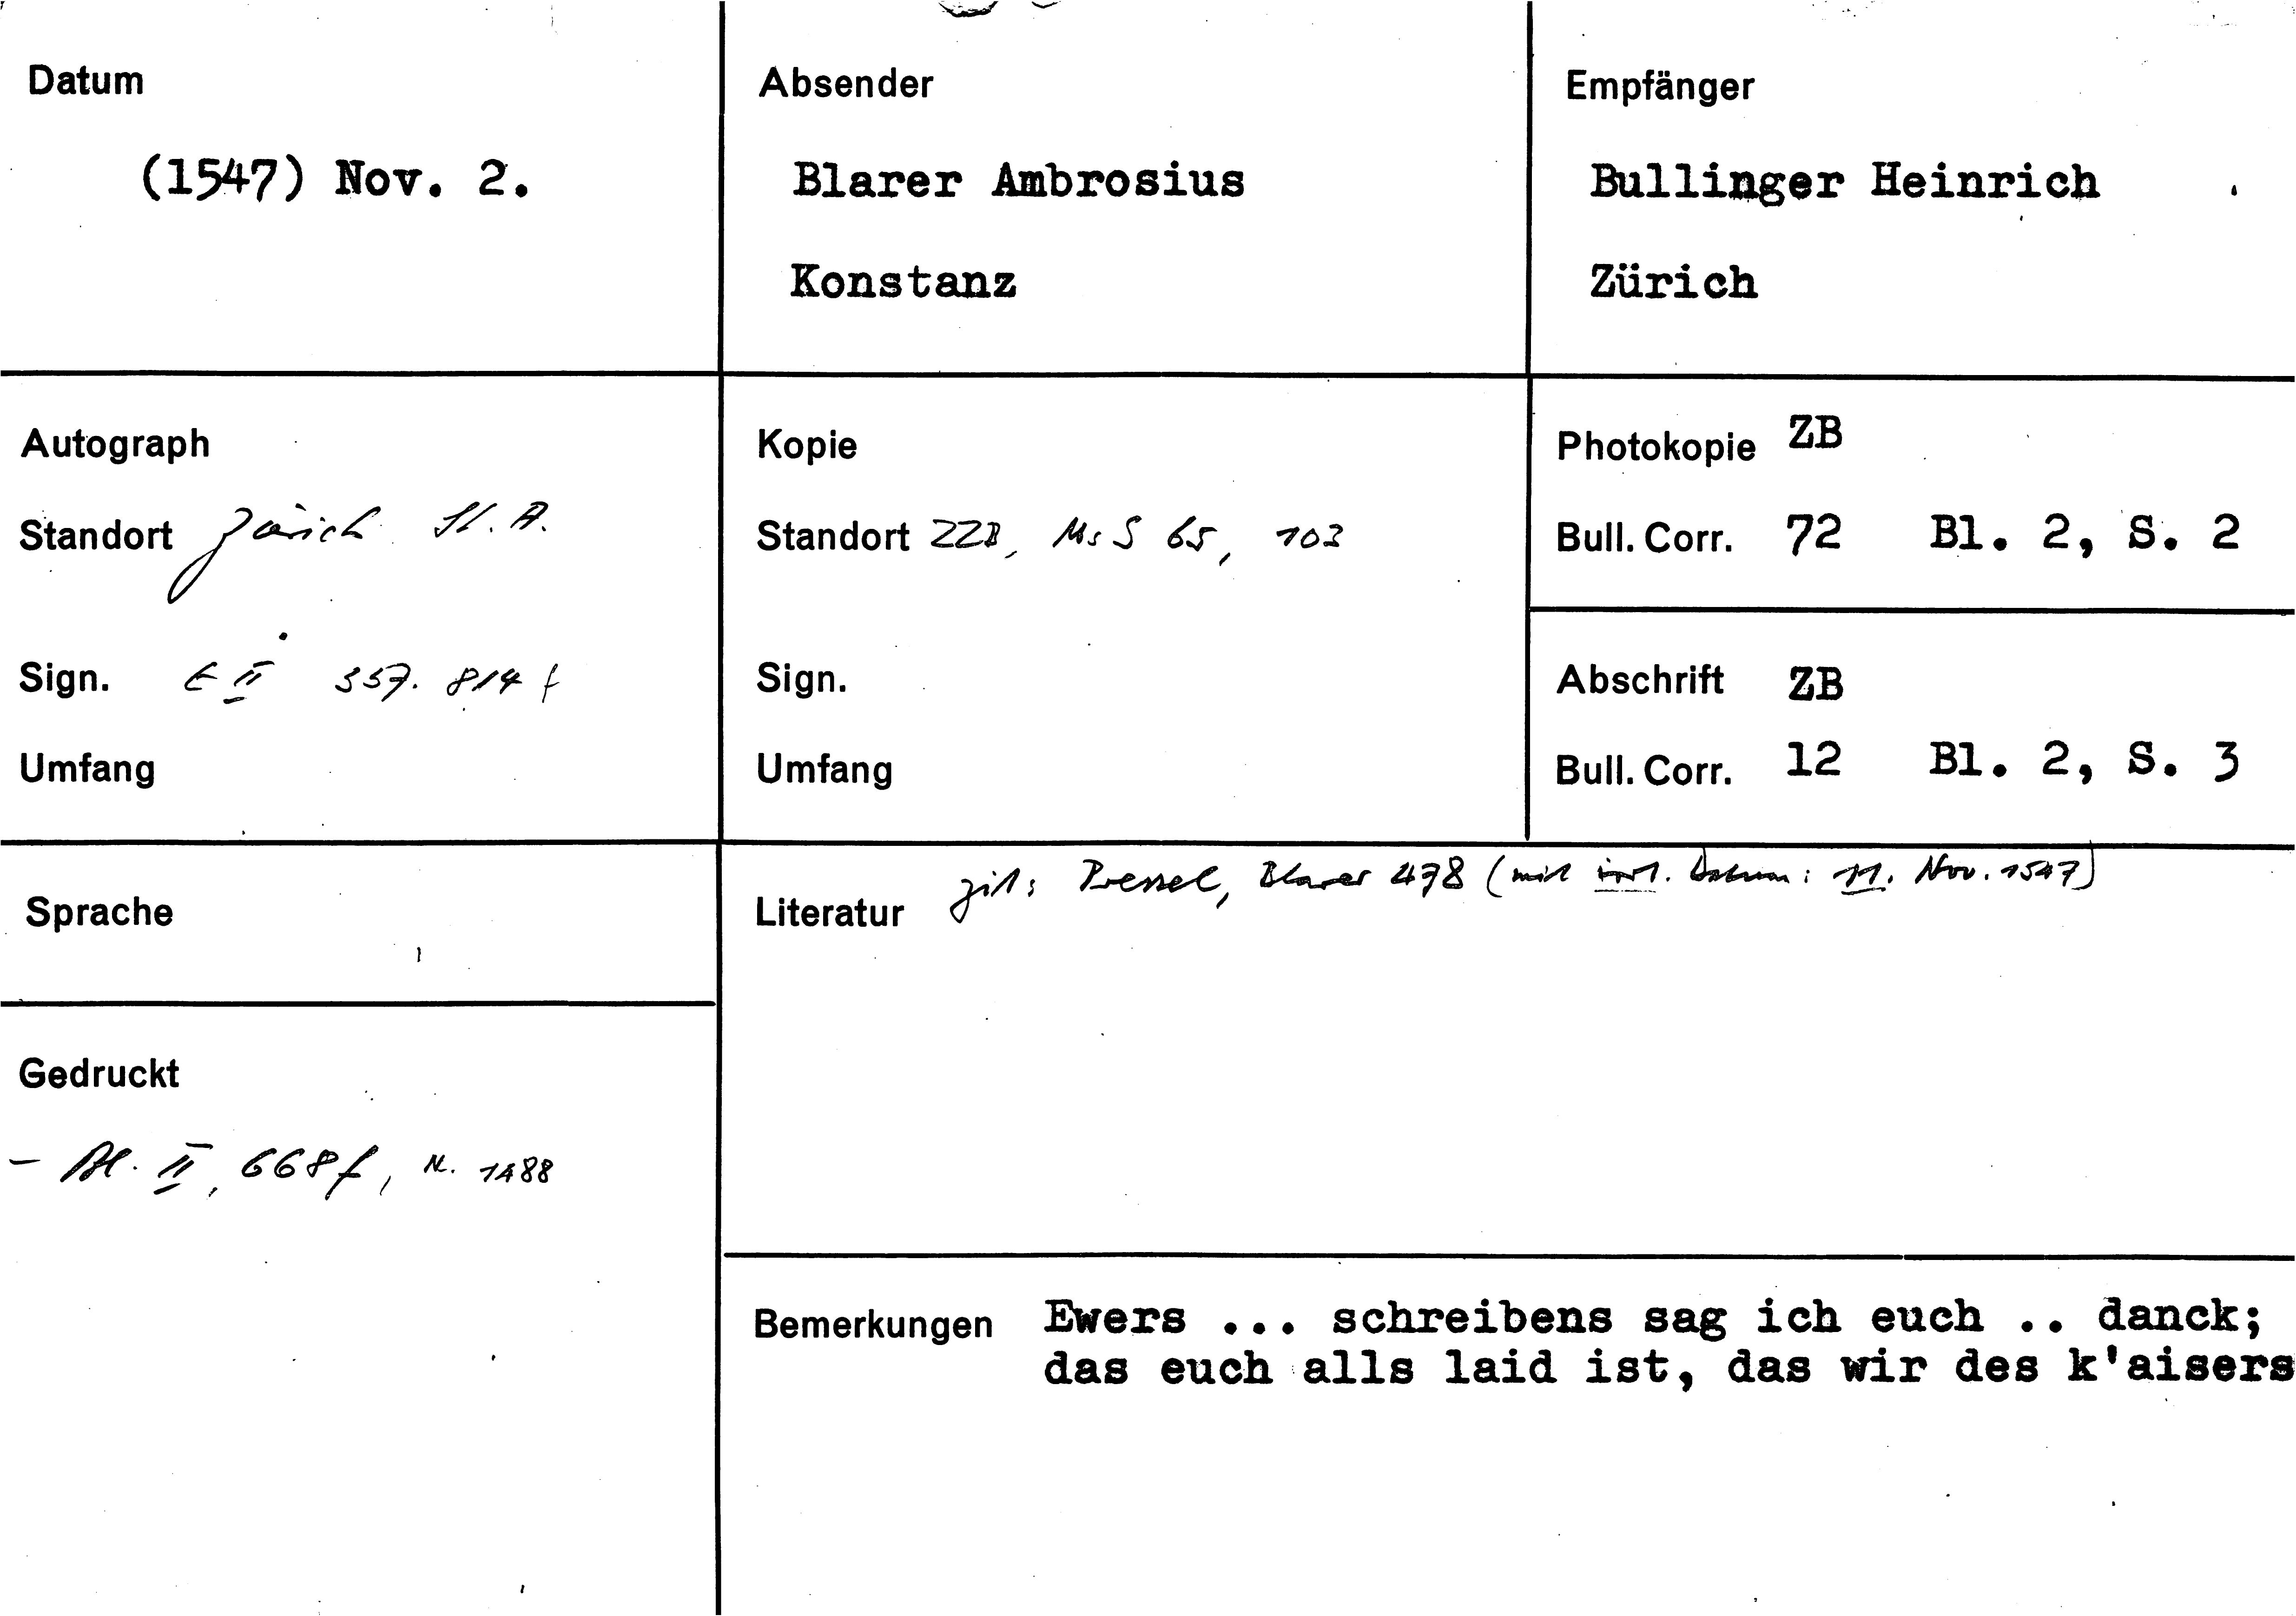 Datum
(1547) Nov. 2.
Absender
Blarer Ambrosius
Konstanz
Empfänger
Bullinger Heinrich
Zürich
Autograph
Standort Zürich St. A.
Sign. E II 357. 814 f
Umfang
Kopie
Standort ZZB, Ms S 65, 103
Sign.
Umfang
Photokopie ZB
Bull. Corr. 72 Bl. 2, S. 2
Abschrift ZB
Bull. Corr. 12 Bl. 2, S. 3
Sprache
Gedruckt
- Bl. II, 668f, N. 1488
Literatur zit: Pressel, Blarer 478 (mit irrt. Datum: 11. Nov. 1547)
Bemerkungen Ewers ... schreibens sag ich euch .. danck;
das euch alls laid ist, das wir des k'aisers